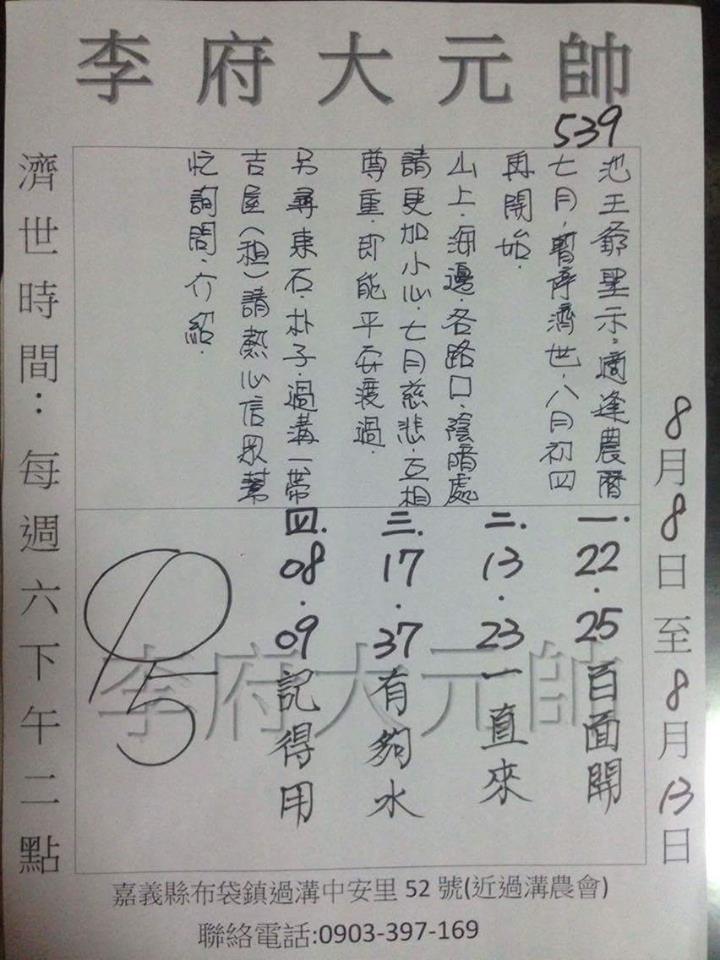 李府大元帥
539
池王爺聖示:適逢農曆
七月,暫停濟世,八月初四
再開始.
山上.海邊.各路口.陰暗處
請更加小心.七月慈悲.互相
尊重.即能平安渡過.
另尋東石.朴子.過溝一帶
吉屋(租)請熱心信眾幫
忙詢問.介紹.
一.22.25百面開
二.13.23一直來
三.17.37有夠水
四.08.09記得用
李府大元帥
8月8日至8月13日
濟世時間:每週六下午二點
嘉義縣布袋鎮過溝中安里 52 號(近過溝農會)
聯絡電話:0903-397-169